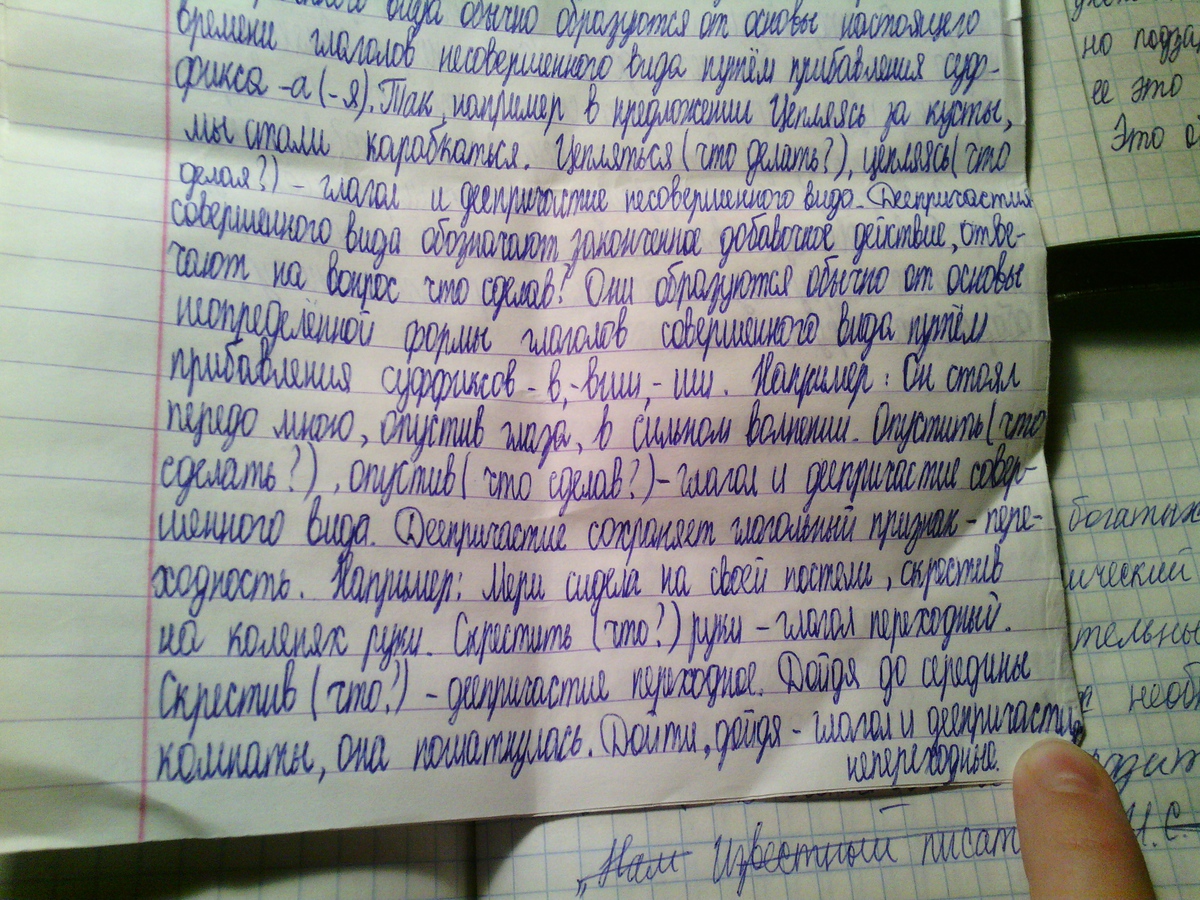 вида обычно образуются от основы настоящего
времени глаголов несовершенного вида путём прибавления суф-
фикса -а (-я). Так, например в предложении Цепляясь за кусты,
мы стали карабкаться. Цепляться (что делать?), цепляясь (что
делая?) - глагол и деепричастие несовершенного вида. Деепричастия
совершенного вида обозначают законченное добавочное действие, отве-
чают на вопрос что сделав? Они образуются обычно от основы
неопределённой формы глаголов совершенного вида путём
прибавления суффиксов -в, -вши, -ши. Например: Он стоял
передо мною, опустив глаза, в сильном волнении. Опустить (что
сделать?), опустив (что сделав?) - глагол и деепричастие совер-
шенного вида. Деепричастие сохраняет глагольный признак - пере-
ходность. Например: Мери сидела на своей постели, скрестив
на коленях руки. Скрестить (что?) руки - глагол переходный.
Скрестив (что?) - деепричастие переходное. Дойдя до середины
комнаты, она пошатнулась. Дойти, дойдя - глагол и деепричастие
непереходные.
но
ее это
Это
богатых
ический
тельны
необ
„Нам Известный писат